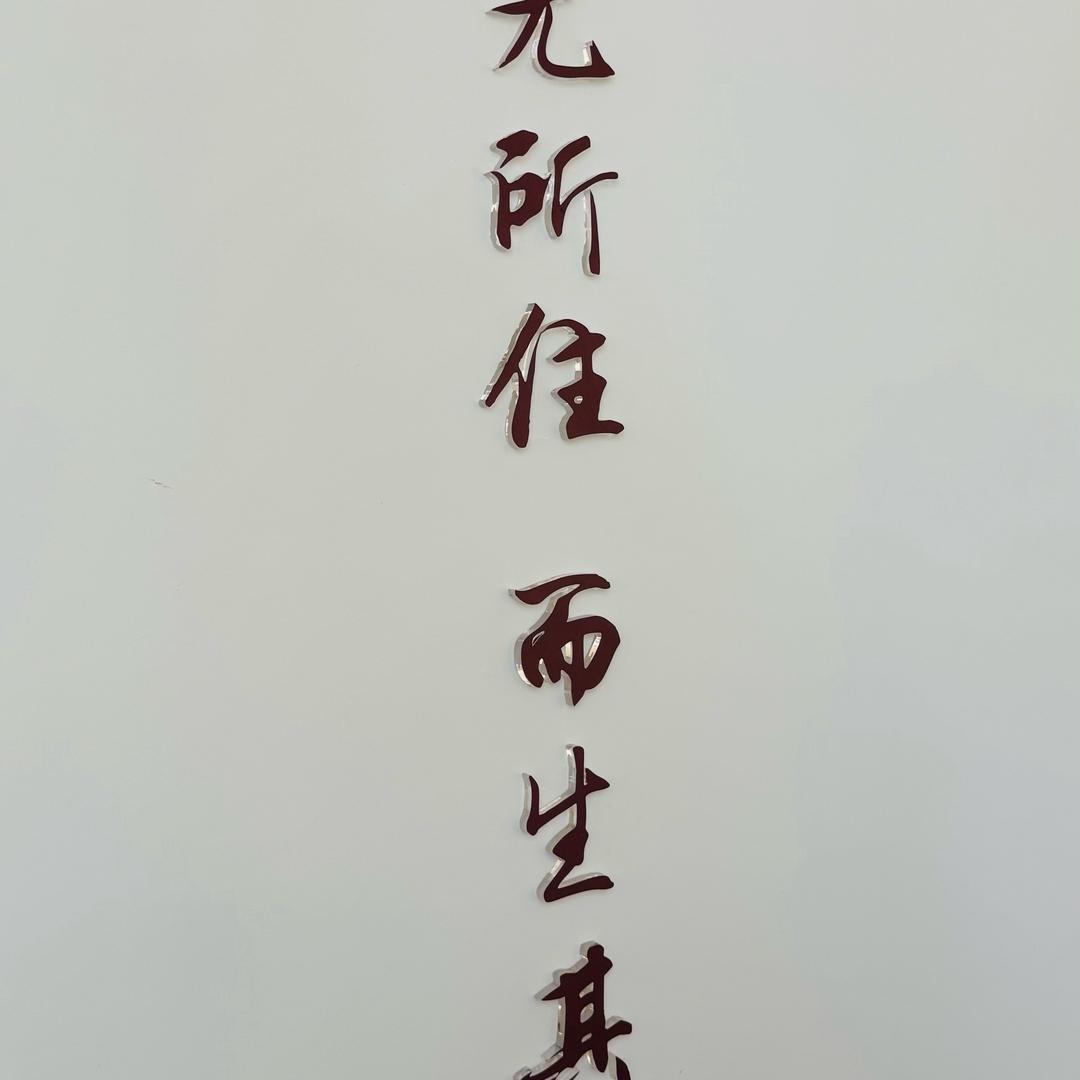 无所住 而生其